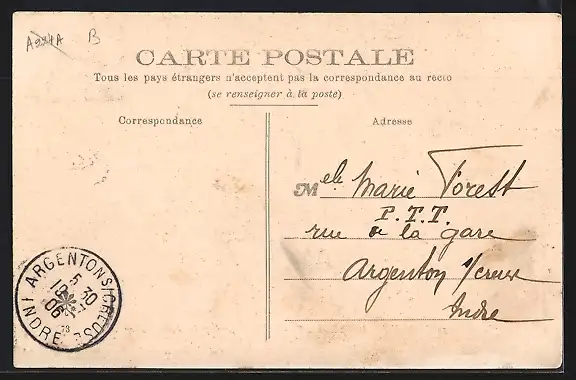 A994A
B
CARTE POSTALE
Tous les pays étrangers n'acceptent pas la correspondance au recto
(se renseigner à la poste)
Correspondance
Adresse
Melle Marie Forest
P.T.T.
rue de la gare
Argenton s/creuse
Indre
ARGENTON S/CREUSE
5 30
19
06
INDRE